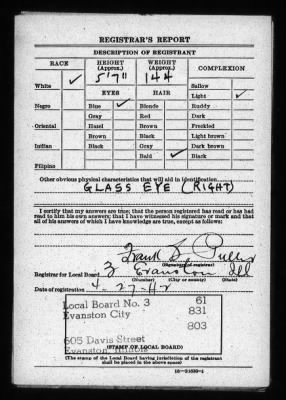 REGISTRAR'S REPORT
DESCRIPTION OF REGISTRANT
RACE HEIGHT (Approx.) WEIGHT (Approx.) COMPLEXION
5'7" 144
White ✓ Sallow
EYES HAIR Light ✓
Negro Blue ✓ Blonde Ruddy
Gray Red Dark
Oriental Hazel Brown Freckled
Brown Black Light brown
Indian Black Gray Dark brown
Bald ✓ Black
Filipino
Other obvious physical characteristics that will aid in identification
GLASS EYE (RIGHT)
I certify that my answers are true; that the person registered has read or has had
read to him his own answers; that I have witnessed his signature or mark and that
all of his answers of which I have knowledge are true, except as follows:
Frank
(Signature of registrar)
Registrar for Local Board 3 Evanston Ill
(Number) (City or county) (State)
Date of registration 4-27-42
Local Board No. 3 61
Evanston City 831
803
605 Davis Street
Evanston, Illinois
(STAMP OF LOCAL BOARD)
(The stamp of the Local Board having jurisdiction of the registrant
shall be placed in the above space)